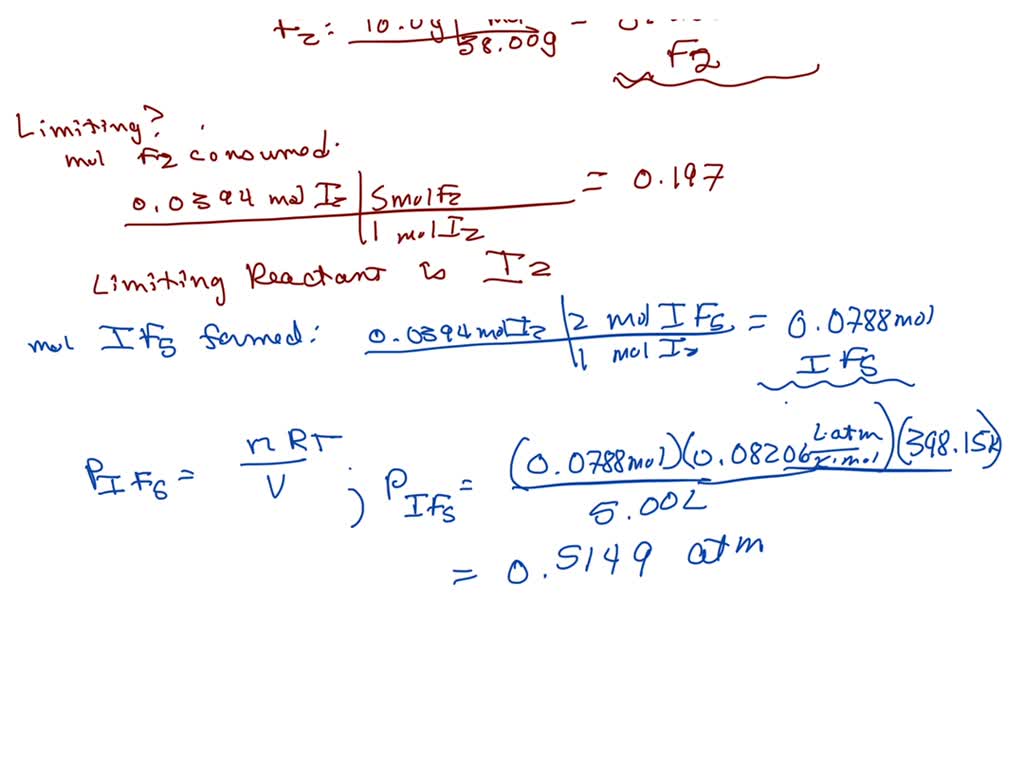 F2: 10.0g | mol
38.00g =
F2
Limiting?
mol F2 consumed.
0.0394 mol I2 | 5 mol F2 = 0.197
1 mol I2
Limiting Reactant is I2
mol IF5 formed: 0.0394 mol I2 | 2 mol IF5 = 0.0788 mol
1 mol I2 IF5
PIF5 = nRT / V ; PIF5 = (0.0788 mol)(0.08206 L·atm / K·mol)(398.15K)
5.00L
= 0.5149 atm